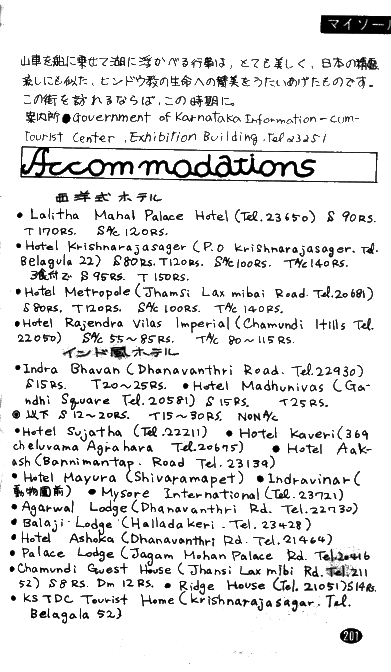 マイソール
山車を船に乗せて湖に浮かべる行事は、とても美しく、日本の精霊
流しにも似た、ヒンドウ教の生命への賛美をうたいあげたものです。
この街を訪れるならば、この時期に。
案内所●Government of Karnataka Information-cum-
Tourist Center, Exhibition Building. Tel 23251
Accommodations
西洋式ホテル
• Lalitha Mahal Palace Hotel (Tel. 23650) S 90RS.
T 170RS. S%c 120RS.
• Hotel Krishnarajasager (P.O Krishnarajasager. Tel.
Belagula 22) S 80RS. T 120RS. S%c 100RS. T%c 140RS.
3食付で S 95RS. T 150RS.
• Hotel Metropole (Jhamsi Lax mibai Road. Tel. 20681)
S 80RS, T 120RS. S%c 100RS. T%c 140RS.
• Hotel Rajendra Vilas Imperial (Chamundi Hills Tel.
22050) S%c 55~85RS. T%c 80~115RS.
インド風ホテル
• Indra Bhavan (Dhanavanthri Road. Tel. 22930)
S 15RS. T 20~25RS. • Hotel Madhunivas (Ga-
ndhi Square Tel. 20581) S 15RS. T 25RS.
◉ 以下 S 12~20RS. T 15~30RS. NON A/c
• Hotel Sujatha (Tel. 22211) • Hotel Kaveri (369
cheluvama Agrahara Tel. 20675) • Hotel Aak-
ash (Bannimantap. Road Tel. 23139)
• Hotel Mayura (Shivarampet) • Indravinar (
動物園前) • Mysore International (Tel. 23721)
• Agarwal Lodge (Dhanavanthri Rd. Tel. 22730)
• Balaji Lodge (Halladakeri. Tel. 23428)
• Hotel Ashoka (Dhanavanthri Rd. Tel. 21464)
• Palace Lodge (Jagam Mohan Palace Rd. Tel. 20416
• Chamundi Guest House (Jhansi Lax mibi Rd. Tel. 211
52) S 8 RS. Dm 12 RS. • Ridge House (Tel. 21051) S 14RS.
• KSTDC Tourist Home (Krishnarajasagar. Tel.
Belagala 52)
201